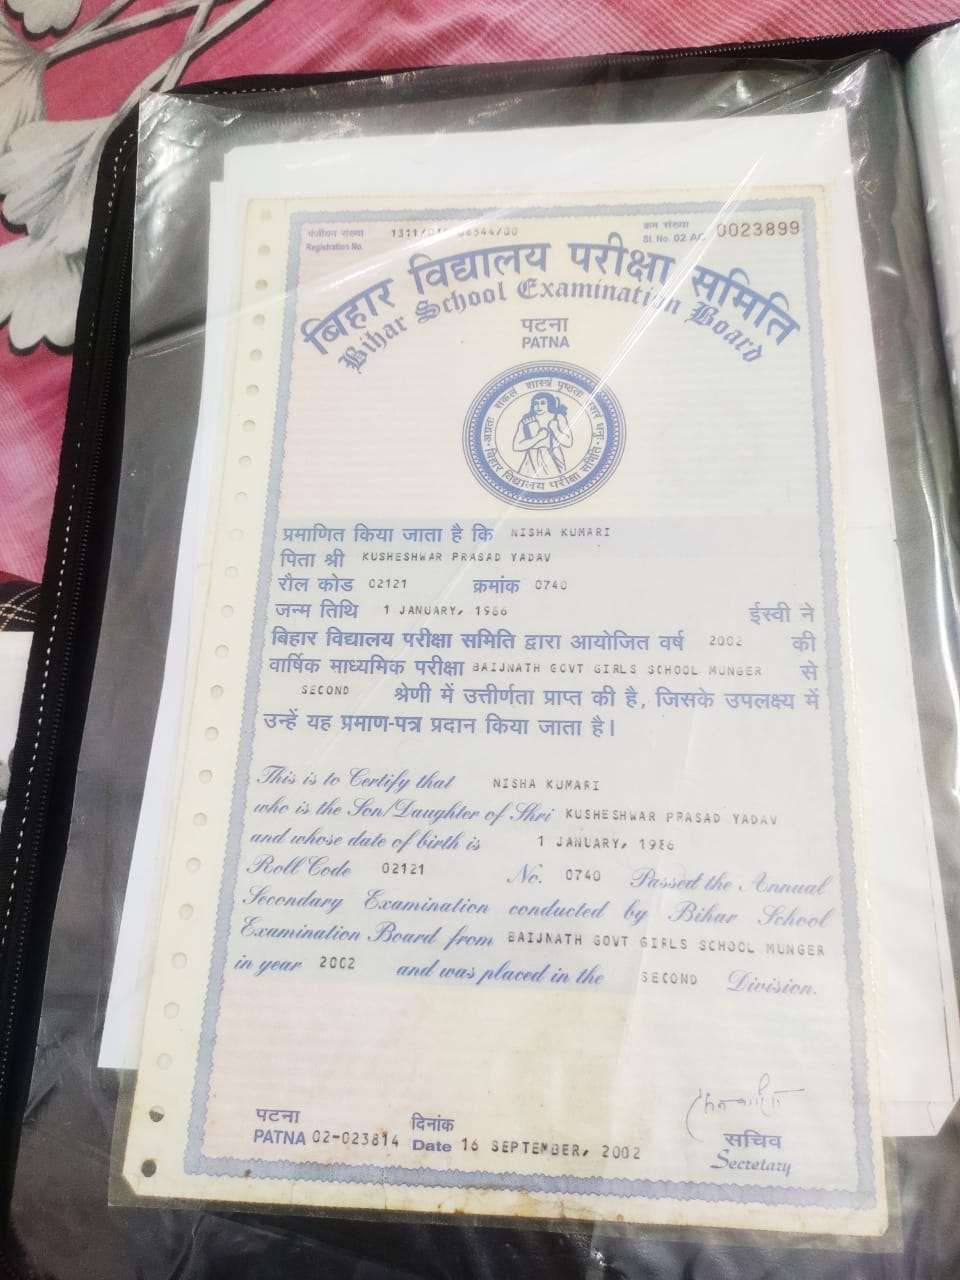 पंजीयन संख्या
Registration No.
क्रम संख्या
Sl. No. 02 AC 0023899
बिहार विद्यालय परीक्षा समिति
Bihar School Examination Board
पटना
PATNA
बिहार विद्यालय परीक्षा समिति
प्रमाणित किया जाता है कि NISHA KUMARI
पिता श्री KUSHESHWAR PRASAD YADAV
रौल कोड 02121 क्रमांक 0740
जन्म तिथि 1 JANUARY, 1986 ईस्वी ने
बिहार विद्यालय परीक्षा समिति द्वारा आयोजित वर्ष 2002 की
वार्षिक माध्यमिक परीक्षा BAIJNATH GOVT GIRLS SCHOOL MUNGER से
SECOND श्रेणी में उत्तीर्णता प्राप्त की है, जिसके उपलक्ष्य में
उन्हें यह प्रमाण-पत्र प्रदान किया जाता है।
This is to Certify that NISHA KUMARI
who is the Son/Daughter of Shri KUSHESHWAR PRASAD YADAV
and whose date of birth is 1 JANUARY, 1986
Roll Code 02121 No. 0740 Passed the Annual
Secondary Examination conducted by Bihar School
Examination Board from BAIJNATH GOVT GIRLS SCHOOL MUNGER
in year 2002 and was placed in the SECOND Division.
पटना
PATNA 02-023814
दिनांक
Date 16 SEPTEMBER, 2002
सचिव
Secretary